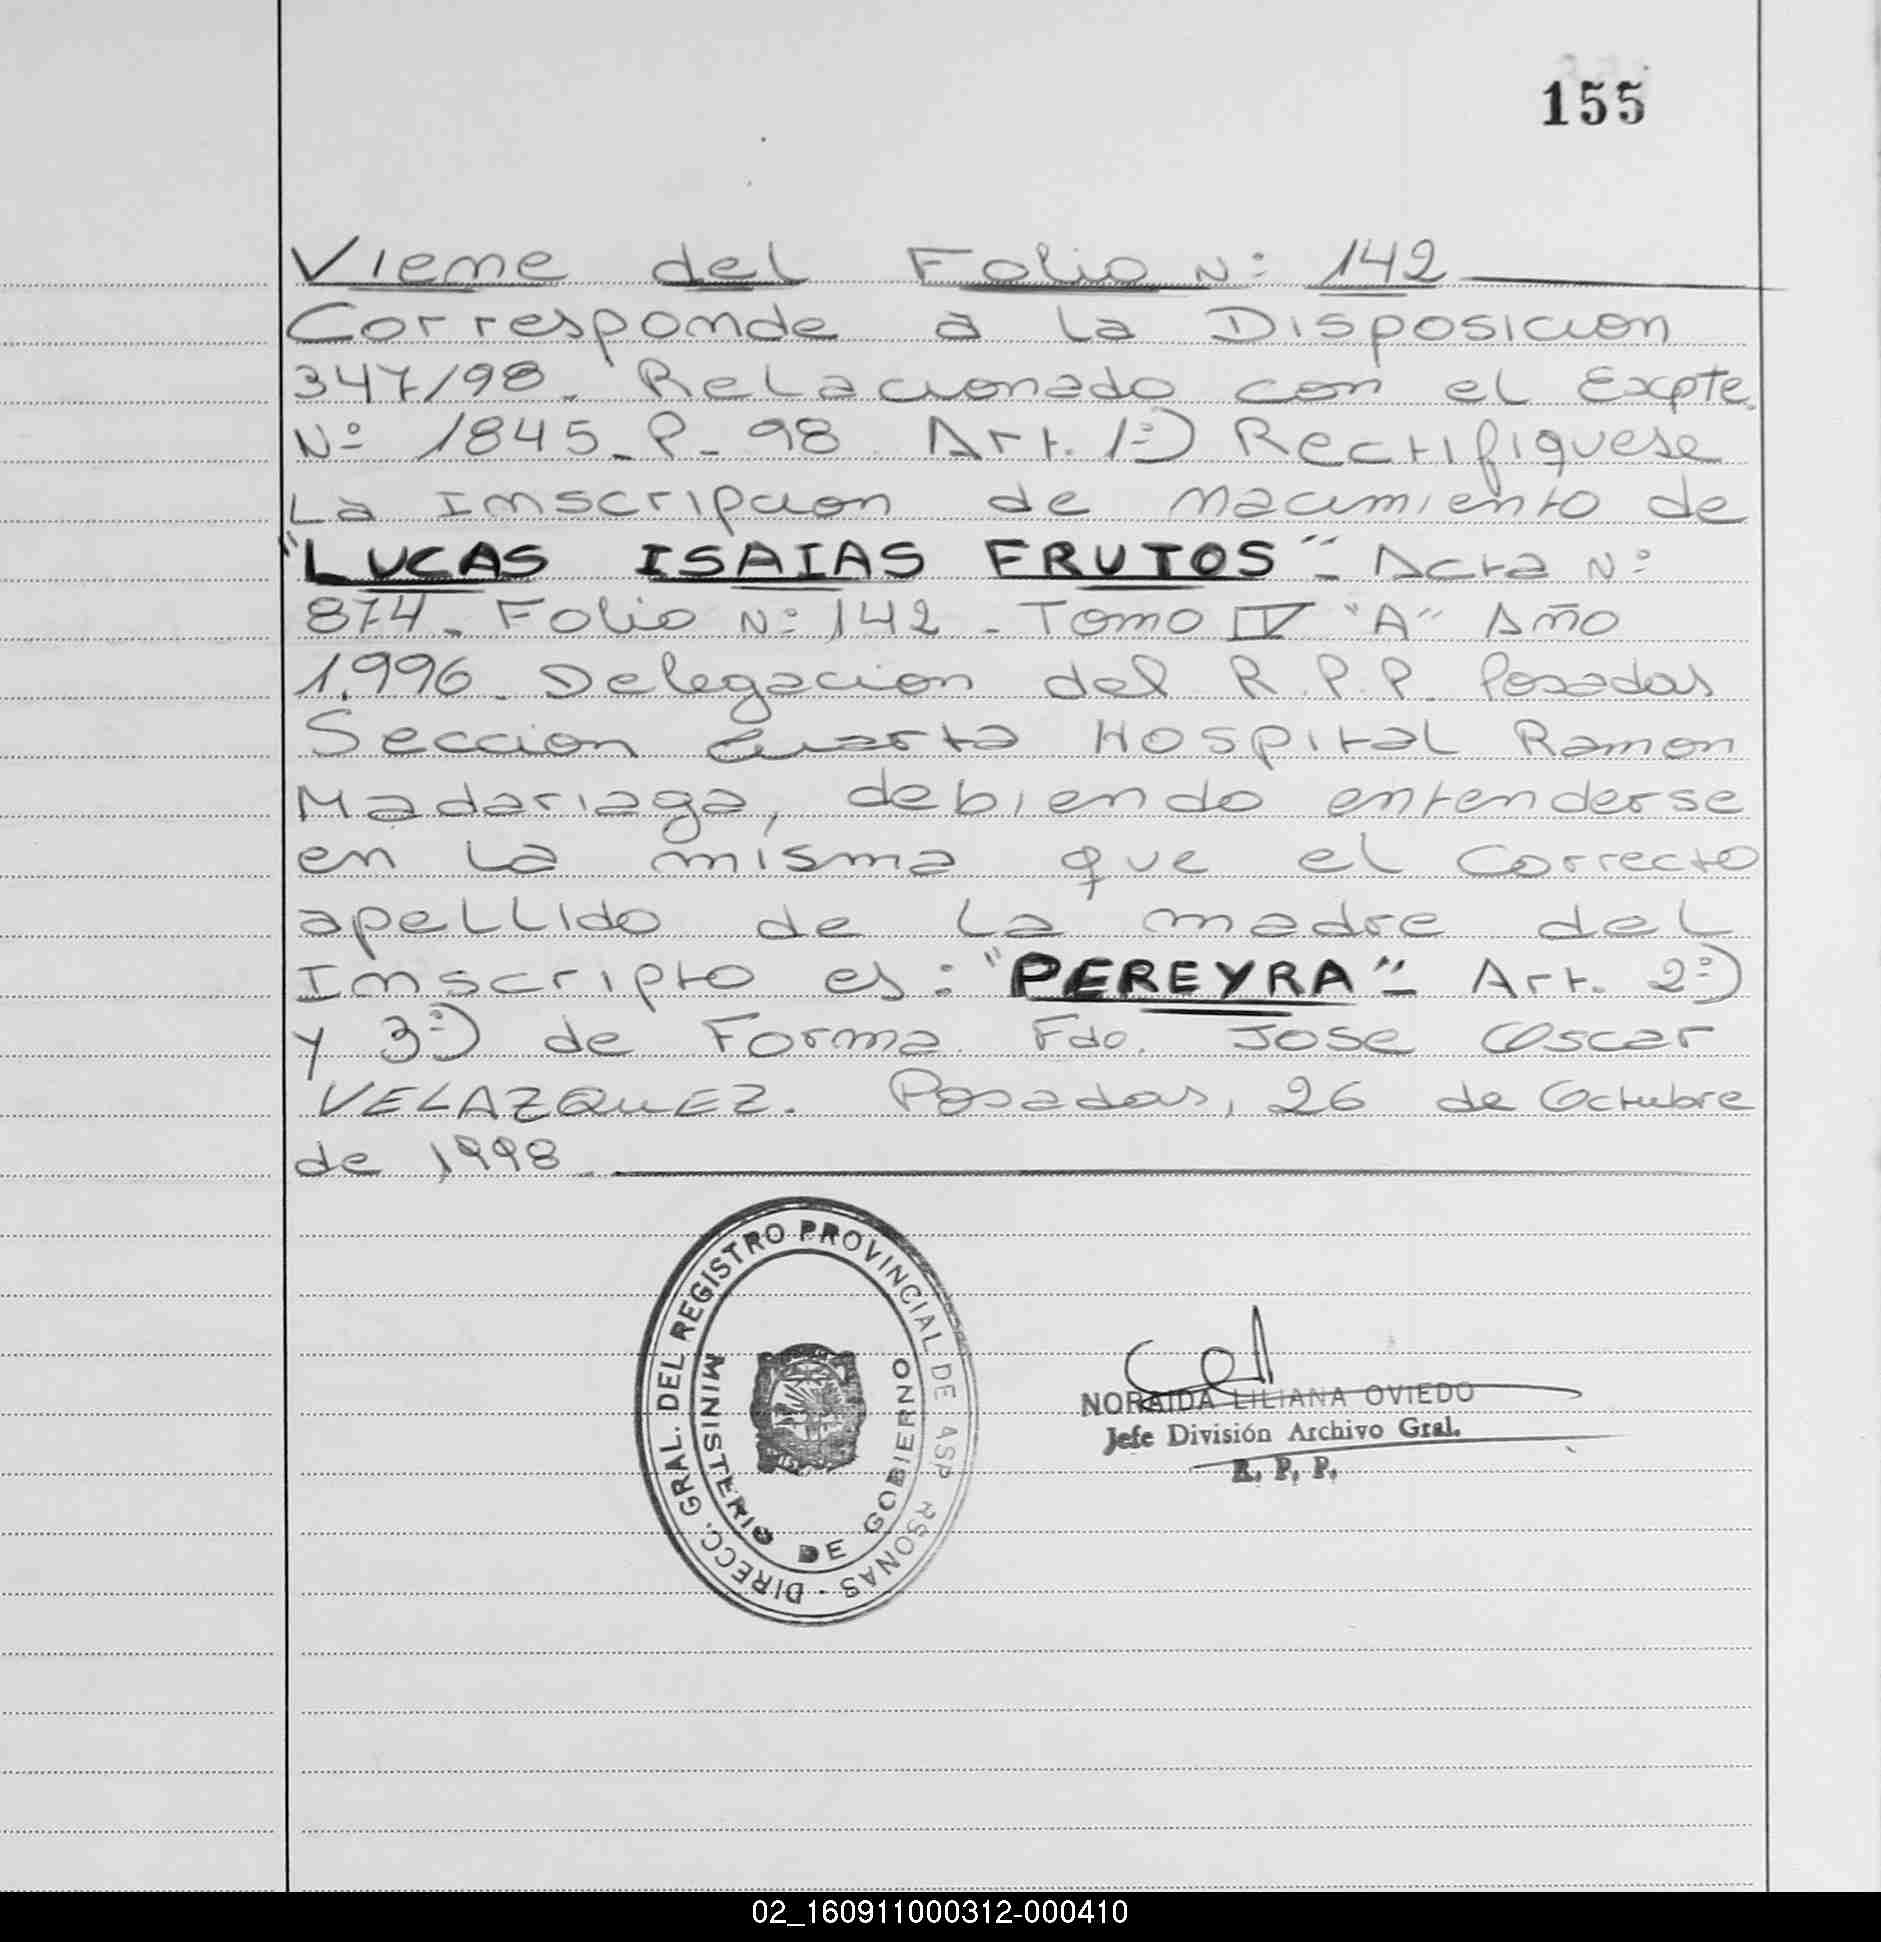 155
Viene del Folio Nº 142
Corresponde a la Disposicion
347/98. Relacionado con el Expte.
Nº 1845-P-98. Art. 1º) Rectifiquese
La Inscripcion de nacimiento de
"LUCAS ISAIAS FRUTOS"- Acta Nº
874. Folio Nº 142 - Tomo IV "A" Año
1.996. Delegacion del R.P.P. Posadas
Seccion Cuarta Hospital Ramon
Madariaga, debiendo entenderse
en la misma que el correcto
apellido de la madre del
Inscripto es: "PEREYRA"- Art. 2º)
y 3º) de Forma. Fdo. Jose Oscar
VELAZQUEZ. Posadas, 26 de Octubre
de 1998
DIRECC. GRAL. DEL REGISTRO PROVINCIAL DE ASP RSONAS -
MINISTERIO DE GOBIERNO
NORAIDA LILIANA OVIEDO
Jefe División Archivo Gral.
R. P. P.
02_160911000312-000410